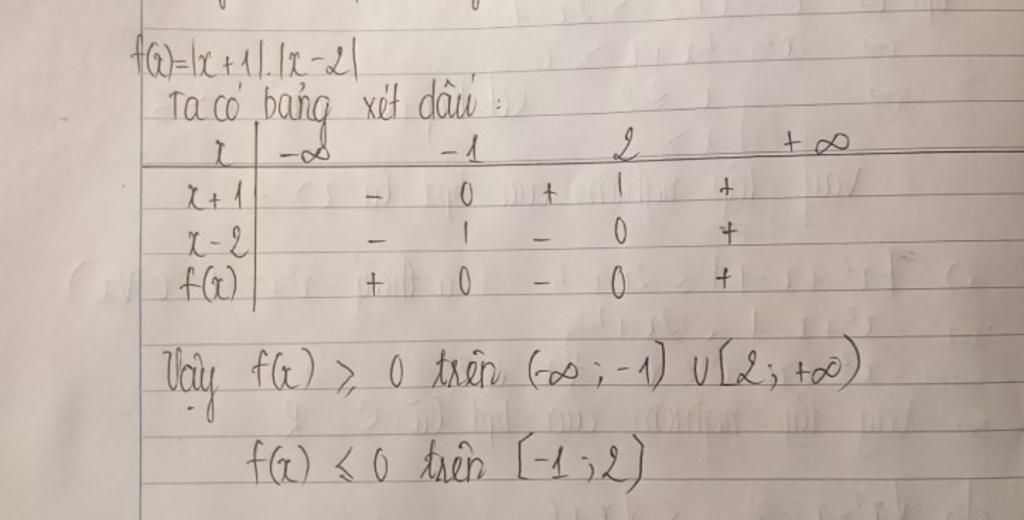 f(x)=|x+1|.|x-2|
Ta có bảng xét dấu:
x -∞ -1 2 +∞
x+1 - 0 + | +
x-2 - | - 0 +
f(x) + 0 - 0 +
Vậy f(x) ⩾ 0 trên (-∞; -1] ∪ [2; +∞)
f(x) ⩽ 0 trên [-1; 2]